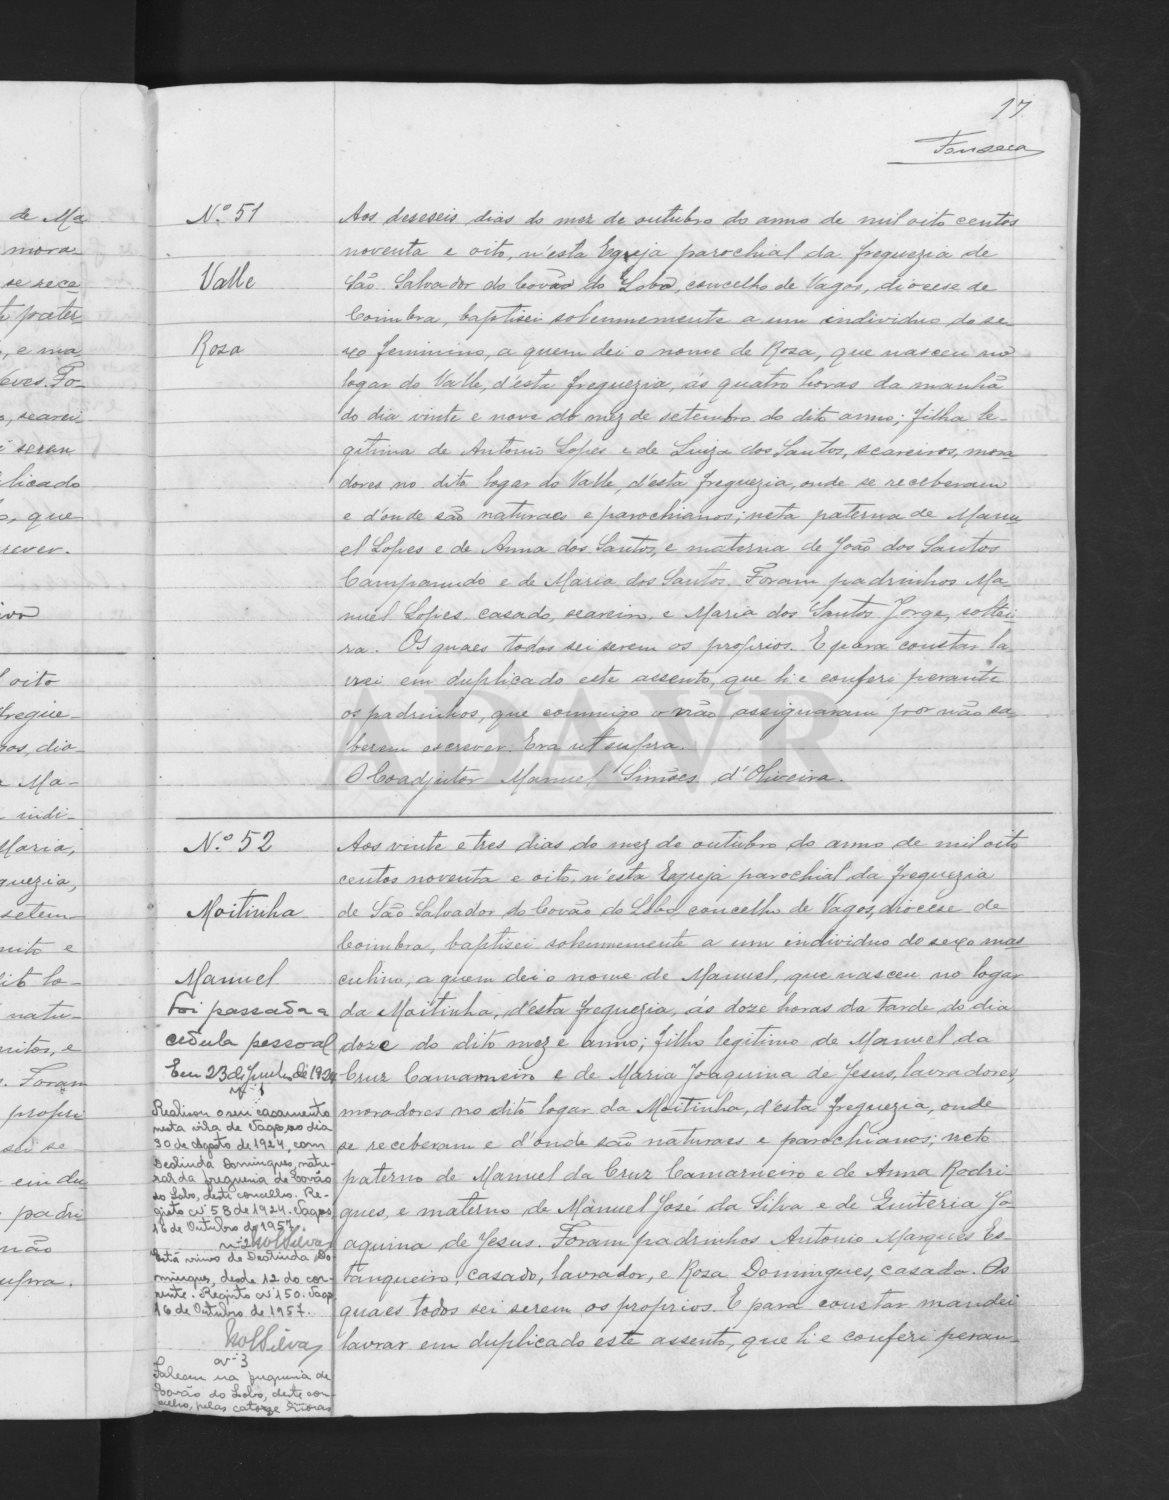 17
Fonseca
de Ma
mora-
se rece
pater
, e ma
eves. Fo-
, seareí-
serem
licado
, que
rever.
oito
fregue-
gos, dio-
Ma-
indi-
Maria,
guezia,
setem-
noito e
dito lo-
natu-
e
Foram
propri
sei se-
em du
padri
não
supra.
N.º 51
Valle
Rosa
Aos deseseis dias do mez de outubro do anno de mil oito centos
noventa e oito, n'esta Egreja parochial da freguezia de
São Salvador do Covão do Lobo, concelho de Vagos, diocese de
Coimbra, baptisei solemnemente a um individuo do se-
xo feminino, a quem dei o nome de Rosa, que nasceu no
logar do Valle, d'esta freguezia, ás quatro horas da manhã
do dia vinte e nove do mez de setembro do dito anno; filha le-
gitima de Antonio Lopes e de Luiza dos Santos, seareiros, mora-
dores no dito logar do Valle, d'esta freguezia, onde se receberam
e d'onde são naturaes e parochianos; neta paterna de Manu-
el Lopes e de Anna dos Santos, e materna de João dos Santos
Campanudo e de Maria dos Santos. Foram padrinhos Ma-
nuel Lopes, casado, seareiro, e Maria dos Santos Jorge, soltei-
ra. Os quaes todos sei serem os proprios. E para constar la-
vrei em duplicado este assento, que li e conferi perante
os padrinhos, que commigo não assignaram por não sa-
berem escrever. Era ut supra.
O Coadjutor Manuel Simões d'Oliveira.
ADAVR
N.º 52
Moitinha
Manuel
Foi passada a
cedula pessoal
Em 23 de Junho de 1924
nº 1
Realisou o seu casamento
nesta vila de Vagos, no dia
30 de Agosto de 1924, com
Deolinda Domingues, natu-
ral da freguesia de Covão
do Lobo, deste concelho. Re-
gisto nº 58 de 1924. Vagos,
16 de Outubro de 1957.
nº 2
Está viuvo de Deolinda Do-
mingues, desde 12 do cor-
rente. Registo nº 150. Vagos
16 de Outubro de 1957.
nº 3
Faleceu na freguesia de
Covão do Lobo, deste con-
celho, pelas catorze horas
Aos vinte e tres dias do mez de outubro do anno de mil oito
centos noventa e oito, n'esta Egreja parochial da freguezia
de São Salvador do Covão do Lobo concelho de Vagos, diocese de
Coimbra, baptisei solemnemente a um individuo do sexo mas-
culino, a quem dei o nome de Manuel, que nasceu no logar
da Moitinha, d'esta freguezia, ás doze horas da tarde do dia
doze do dito mez e anno; filho legitimo de Manuel da
Cruz Camarneiro e de Maria Joaquina de Jesus, lavradores,
moradores no dito logar da Moitinha, d'esta freguezia, onde
se receberam e d'onde são naturaes e parochianos; neto
paterno de Manuel da Cruz Camarneiro e de Anna Rodri-
gues, e materno de Manuel José da Silva e de Quiteria Jo-
aquina de Jesus. Foram padrinhos Antonio Marques Es-
tanqueiro, casado, lavrador, e Rosa Domingues, casada. Os
quaes todos sei serem os proprios. E para constar mandei
lavrar em duplicado este assento, que li e conferi peran-